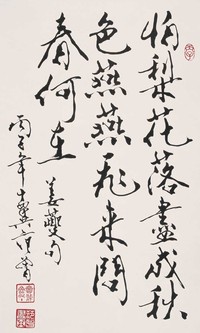 怕梨花落盡成秋
色燕燕飛來問
春何在
姜夔句
丙子年十翼范曾